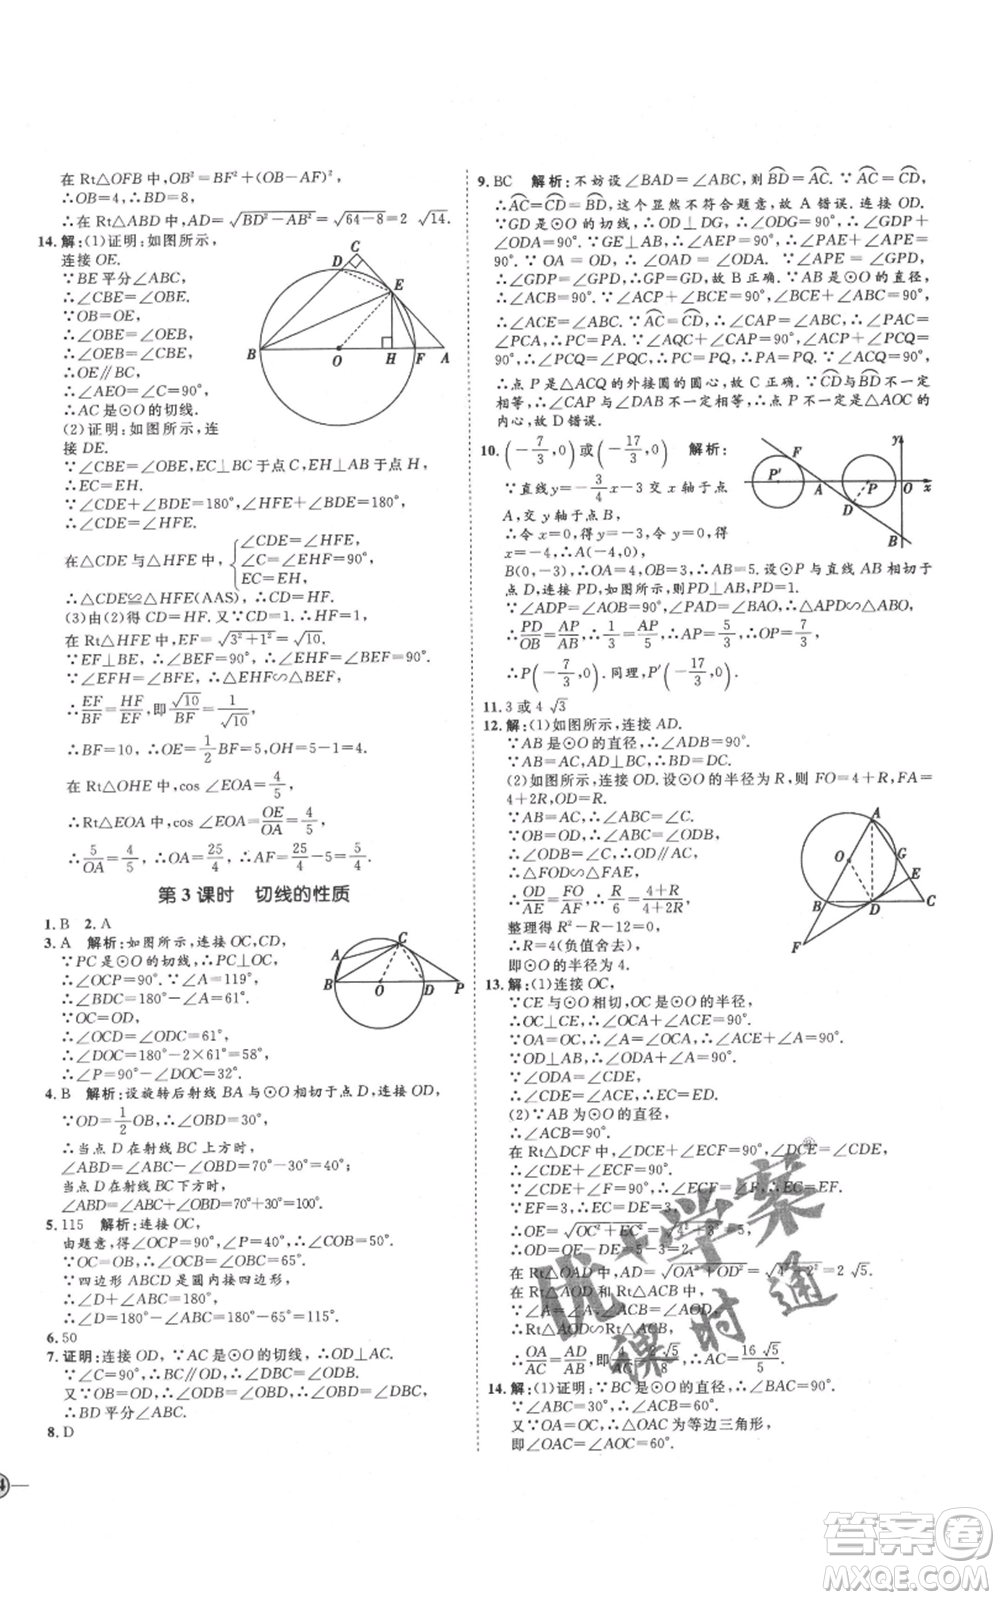 在 Rt△OFB 中,OB²=BF²+(OB-AF)²,
∴OB=4,∴BD=8,
∴在 Rt△ABD 中,AD=√(BD²-AB²)=√(64-8)=2√14.
14.解:(1)证明:如图所示,
连接 OE.
∵BE 平分∠ABC,
∴∠CBE=∠OBE.
∵OB=OE,
∴∠OBE=∠OEB,
∴∠OEB=∠CBE,
∴OE∥BC,
∴∠AEO=∠C=90°,
∴AC 是⊙O 的切线.
(2)证明:如图所示,连
接 DE.
∵∠CBE=∠OBE,EC⊥BC 于点 C,EH⊥AB 于点 H,
∴EC=EH.
∵∠CDE+∠BDE=180°,∠HFE+∠BDE=180°,
∴∠CDE=∠HFE.
在△CDE 与△HFE 中,{∠CDE=∠HFE,
∠C=∠EHF=90°,
EC=EH,
∴△CDE≌△HFE(AAS),∴CD=HF.
(3)由(2)得 CD=HF. 又∵CD=1.∴HF=1,
在 Rt△HFE 中,EF=√(3²+1²)=√10.
∵EF⊥BE,∴∠BEF=90°,∴∠EHF=∠BEF=90°.
∵∠EFH=∠BFE,∴△EHF∽△BEF,
∴EF/BF=HF/EF,即√10/BF=1/√10,
∴BF=10,∴OE=1/2BF=5,OH=5-1=4,
在 Rt△OHE 中,cos ∠EOA=4/5,
∴Rt△EOA 中,cos ∠EOA=OE/OA=4/5,
∴5/OA=4/5,∴OA=25/4,∴AF=25/4-5=5/4.
第 3 课时 切线的性质
1.B 2.A
3.A 解析:如图所示,连接 OC,CD,
∵PC 是⊙O 的切线,∴PC⊥OC,
∴∠OCP=90°.∵∠A=119°,
∴∠BDC=180°-∠A=61°.
∵OC=OD,
∴∠OCD=∠ODC=61°,
∴∠DOC=180°-2×61°=58°,
∴∠P=90°-∠DOC=32°.
4.B 解析:设旋转后射线 BA 与⊙O 相切于点 D,连接 OD,
∵OD=1/2OB,∴∠OBD=30°,
∴当点 D 在射线 BC 上方时,
∠ABD=∠ABC-∠OBD=70°-30°=40°;
当点 D 在射线 BC 下方时,
∠ABD=∠ABC+∠OBD=70°+30°=100°.
5.115 解析:连接 OC,
由题意,得∠OCP=90°,∠P=40°,∴∠COB=50°.
∵OC=OB,∴∠OCB=∠OBC=65°.
∵四边形 ABCD 是圆内接四边形,
∴∠D+∠ABC=180°,
∴∠D=180°-∠ABC=180°-65°=115°.
6.50
7.证明:连接 OD,∵AC 是⊙O 的切线,∴OD⊥AC.
∵∠C=90°,∴OD∥BC,∴∠ODB=∠CBD.
又∵OB=OD,∴∠OBD=∠ODB,∴∠CBD=∠OBD,
∴BD 平分∠ABC.
8.D
9.BC 解析:不妨设∠BAD=∠ABC,则BD=AC.∵AC=CD,
∴AC=CD=BD,这个显然不符合题意,故 A 错误.连接 OD.
∵GD 是⊙O 的切线,∴OD⊥DG,∴∠ODG=90°,∴∠GDP+
∠ODA=90°.∵GE⊥AB,∴∠GEA=90°,∴∠APE+∠PAE=
90°.∵OA=OD,∴∠OAD=∠ODA.∴∠GDP=∠APE=
∠GPD,∴GD=GP,故 B 正确.∵AB 是⊙O 的直径,
∴∠ACB=90°.∵∠ACP+∠BCE=90°,∠BCE+∠ABC=90°,
∴∠ACE=∠ABC.∵AC=CD,∴∠CAP=∠ABC=∠ACP,
∴PC=PA.∵∠AQC+∠CAP=90°,∠ACP+∠PCQ=90°,
∴∠PCQ=∠PQC,∴PC=PQ,∴PA=PQ.∵∠ACQ=90°,
∴点 P 是△ACQ 的外接圆的圆心,故 C 正确.∵CD与BD不一定
相等,∴∠CAP 与∠DAB 不一定相等,∴点 P 不一定是△AOC 的
内心,故 D 错误.
10.(-7/3,0)或(-17/3,0) 解析:
∵直线 y=-3/4x-3 交 x 轴于点
A,交 y 轴于点 B,
∴令 x=0,得 y=-3,令 y=0,得
x=-4,∴A(-4,0),
B(0,-3),∴OA=4,OB=3,∴AB=5. 设⊙P 与直线 AB 相切于点
D,连接 PD,如图所示,则PD⊥AB,PD=1.
∵∠ADP=∠AOB=90°,∠PAD=∠BAO,∴△APD∽△ABO,
∴PD/OB=AP/AB,∴1/3=AP/5,∴AP=5/3,∴OP=7/3,
∴P(-7/3,0).同理,P′(-17/3,0).
11.3 或 4√3
12.解:(1)如图所示,连接 AD.
∵AB 是⊙O 的直径,∴∠ADB=90°.
∵AB=AC,AD⊥BC,∴BD=DC.
(2)如图所示,连接 OD.设⊙O 的半径为 R,则 FO=4+R,FA=
4+2R,OD=R.
∵AB=AC,∴∠ABC=∠C.
∵OB=OD,∴∠ABC=∠ODB,
∴∠ODB=∠C,∴OD∥AC,
∴△FOD∽△FAE,
∴OD/AE=FO/FA,∴R/6=(4+R)/(4+2R),
整理得 R²-R-12=0,
∴R=4(负值舍去),
即⊙O 的半径为 4.
13.解:(1)连接 OC,
∵CE 与⊙O 相切,OC 是⊙O 的半径,
∴OC⊥CE,∴∠OCA+∠ACE=90°.
∵OA=OC,∴∠A=∠OCA,∴∠ACE+∠A=90°.
∵OD⊥AB,∴∠ODA+∠A=90°.
∵∠ODA=∠CDE,∴∠CDE+∠A=90°,
∴∠CDE=∠ACE,∴EC=ED.
(2)∵OC 是⊙O 的直径,
在 Rt△DCF 中,∠DCE+∠ECF=90°,∠DCE=∠CDE,
∴∠CDE+∠ECF=90°.∵∠CDE+∠F=90°,∴∠ECF=∠F,
∵EF=3,∴EC=DE=3,
∴OE=√(OC²+EC²)=√(4²+3²)=5,
∴OD=OE-DE=5-3=2.
在 Rt△OAD 中,AD=√(OA²+OD²)=√(4²+2²)=2√5.
在 Rt△AOD 和 Rt△ACB 中,
∴Rt△AOD∽Rt△ACB,
∴OA/AC=AD/AB,即4/AC=2√5/8,∴AC=16√5/5.
14.解:(1)证明:∵BC 是⊙O 的直径,∴∠BAC=90°.
又∵OA=OC=AC,∴△OAC 为等边三角形,
即∠OAC=∠AOC=60°.
优+学案
课时通
答案卷
MXQE.COM